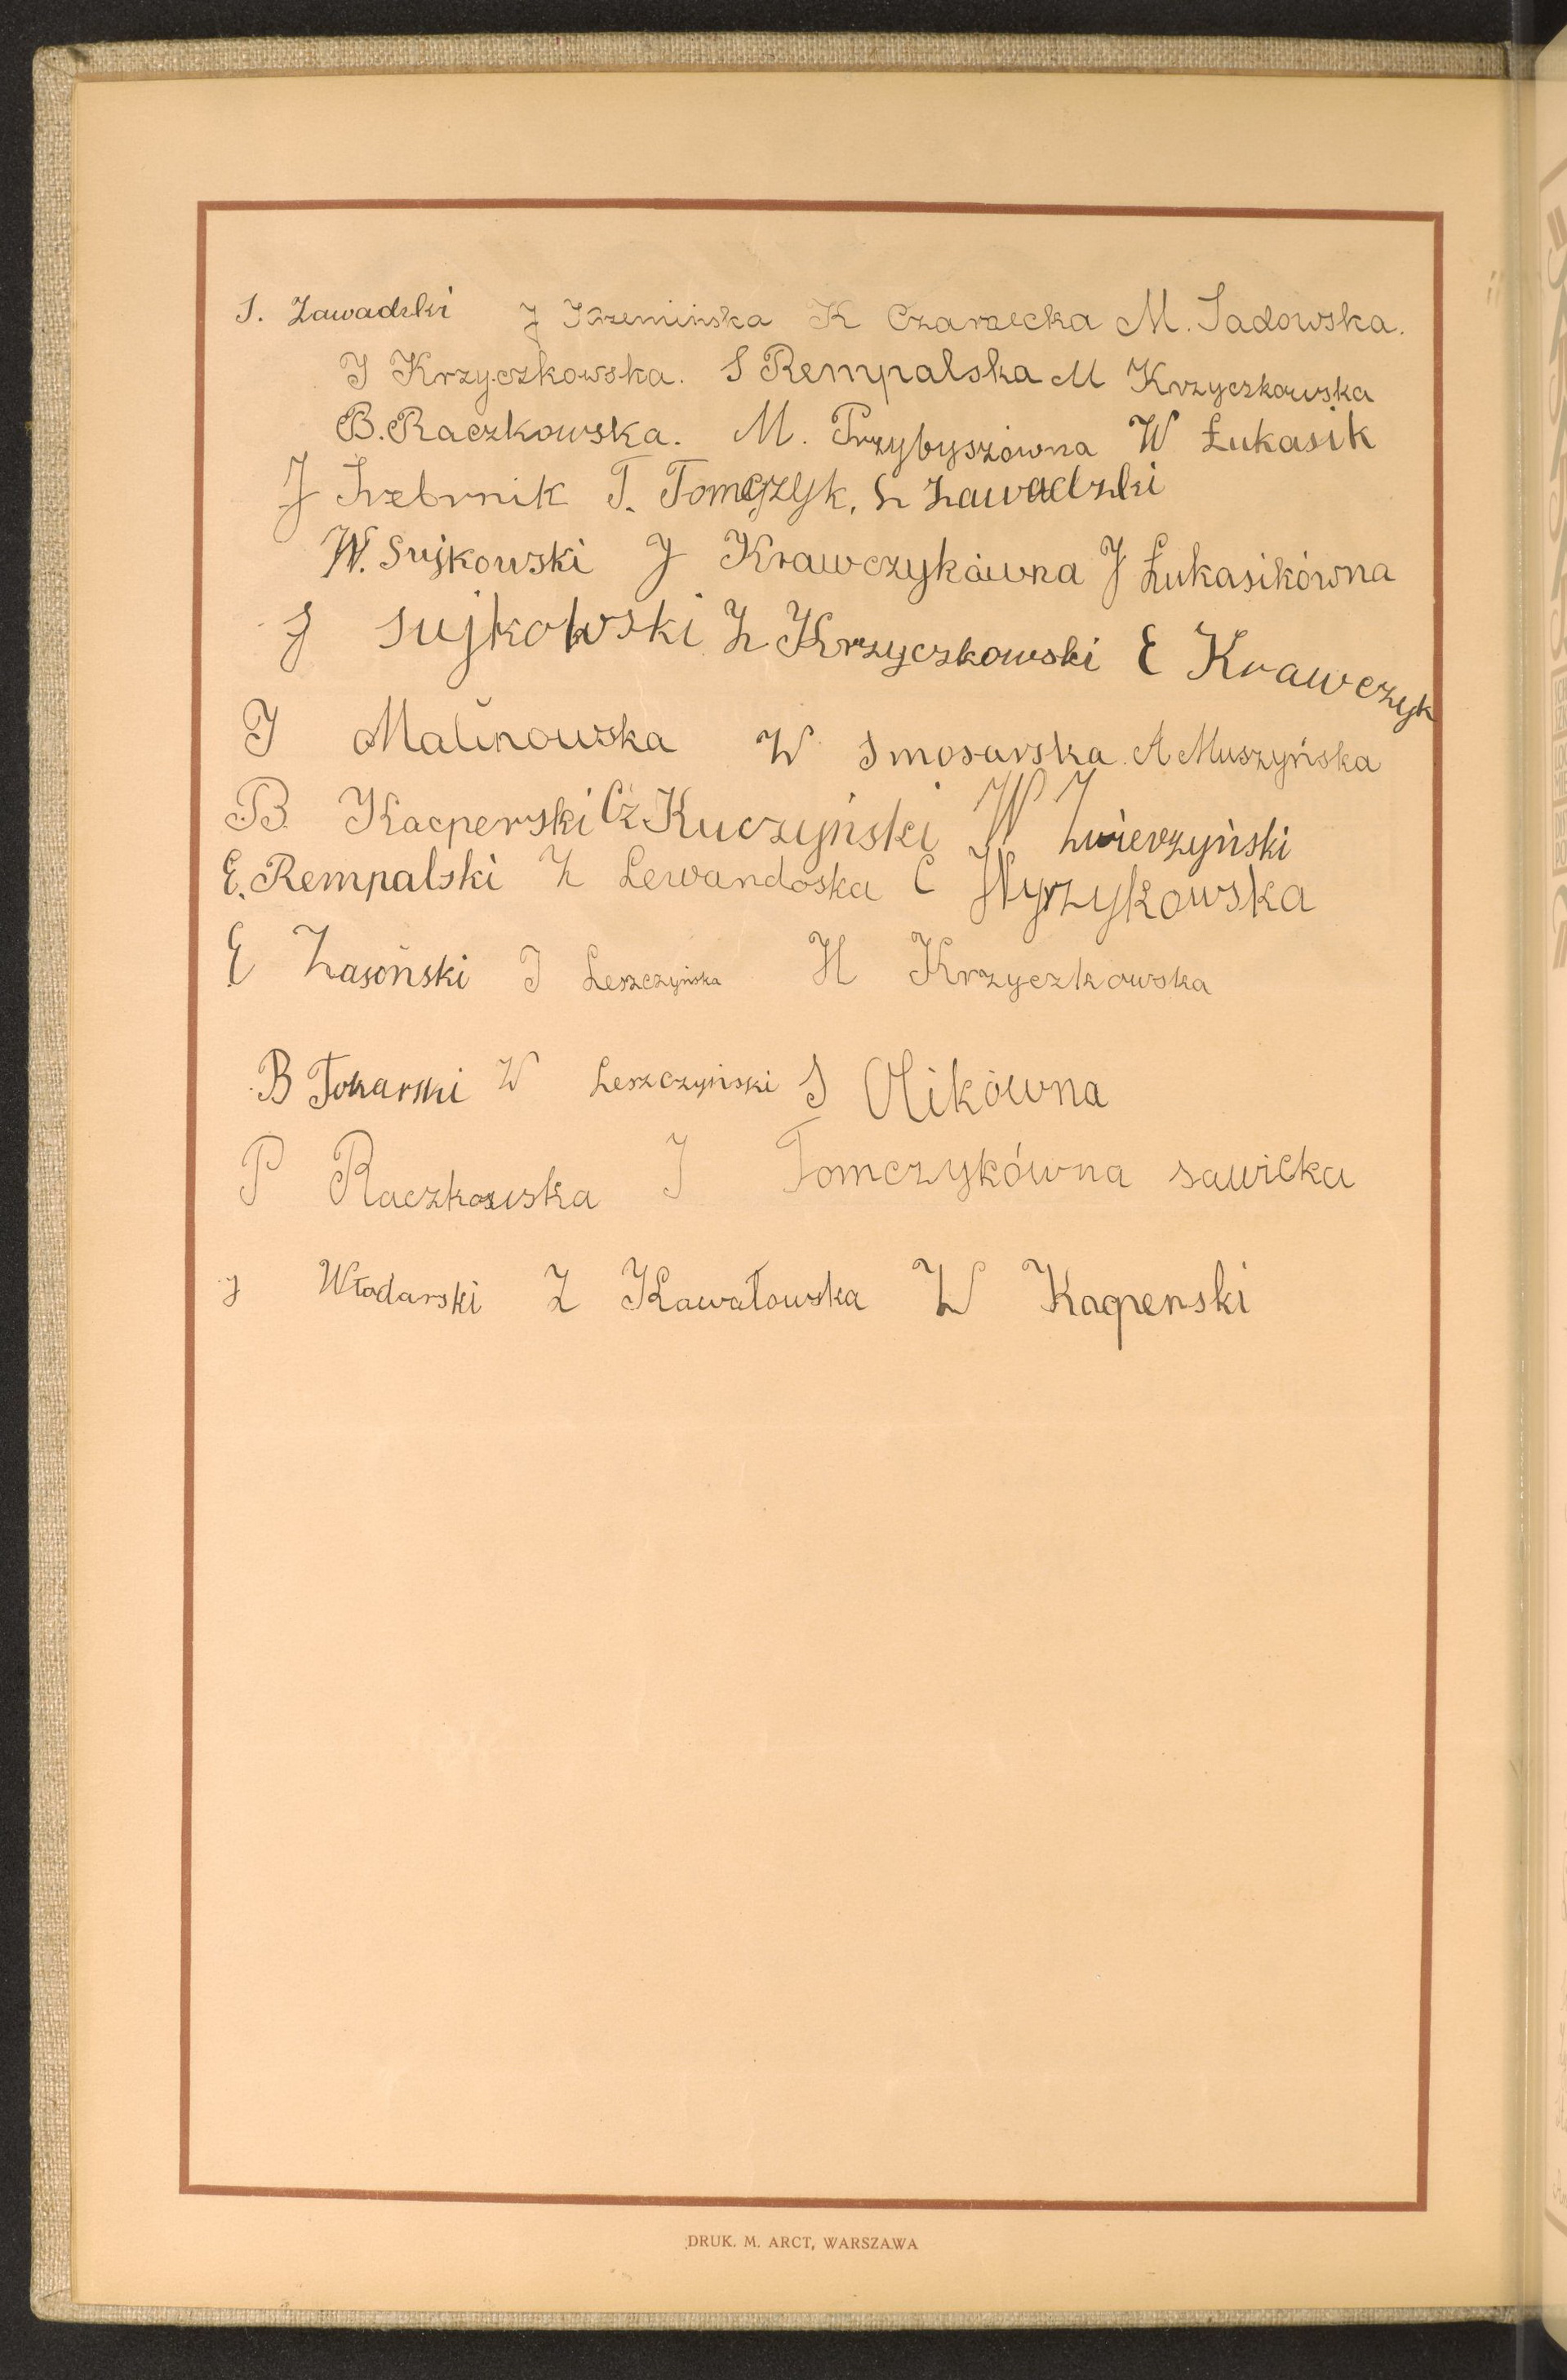 S. Zawadzki J Krzemińska K Czarnecka M. Sadowska.
J Krzyczkowska. S Rempalska M Krzyczkowska
B. Raczkowska. M. Przybyszówna W Łukasik
J Srebrnik T. Tomczyk, Z Zawadzki
W. Sujkowski J Krawczykówna J Łukasikówna
J Sujkowski Z Krzyczkowski E Krawczyk
J Malinowska W Smosarska A Muszyńska
B Kacperski Cz Kuczyński W Zwierzyński
E. Rempalski Z Lewandoska C Wyrzykowska
E Zasoński J Leszczyńska H Krzyczkowska
B Tokarski W Leszczyński S Olikówna
P Raczkowska J Tomczykówna sawicka
J Włodarski Z Kawałowska W Kacperski
DRUK. M. ARCT, WARSZAWA